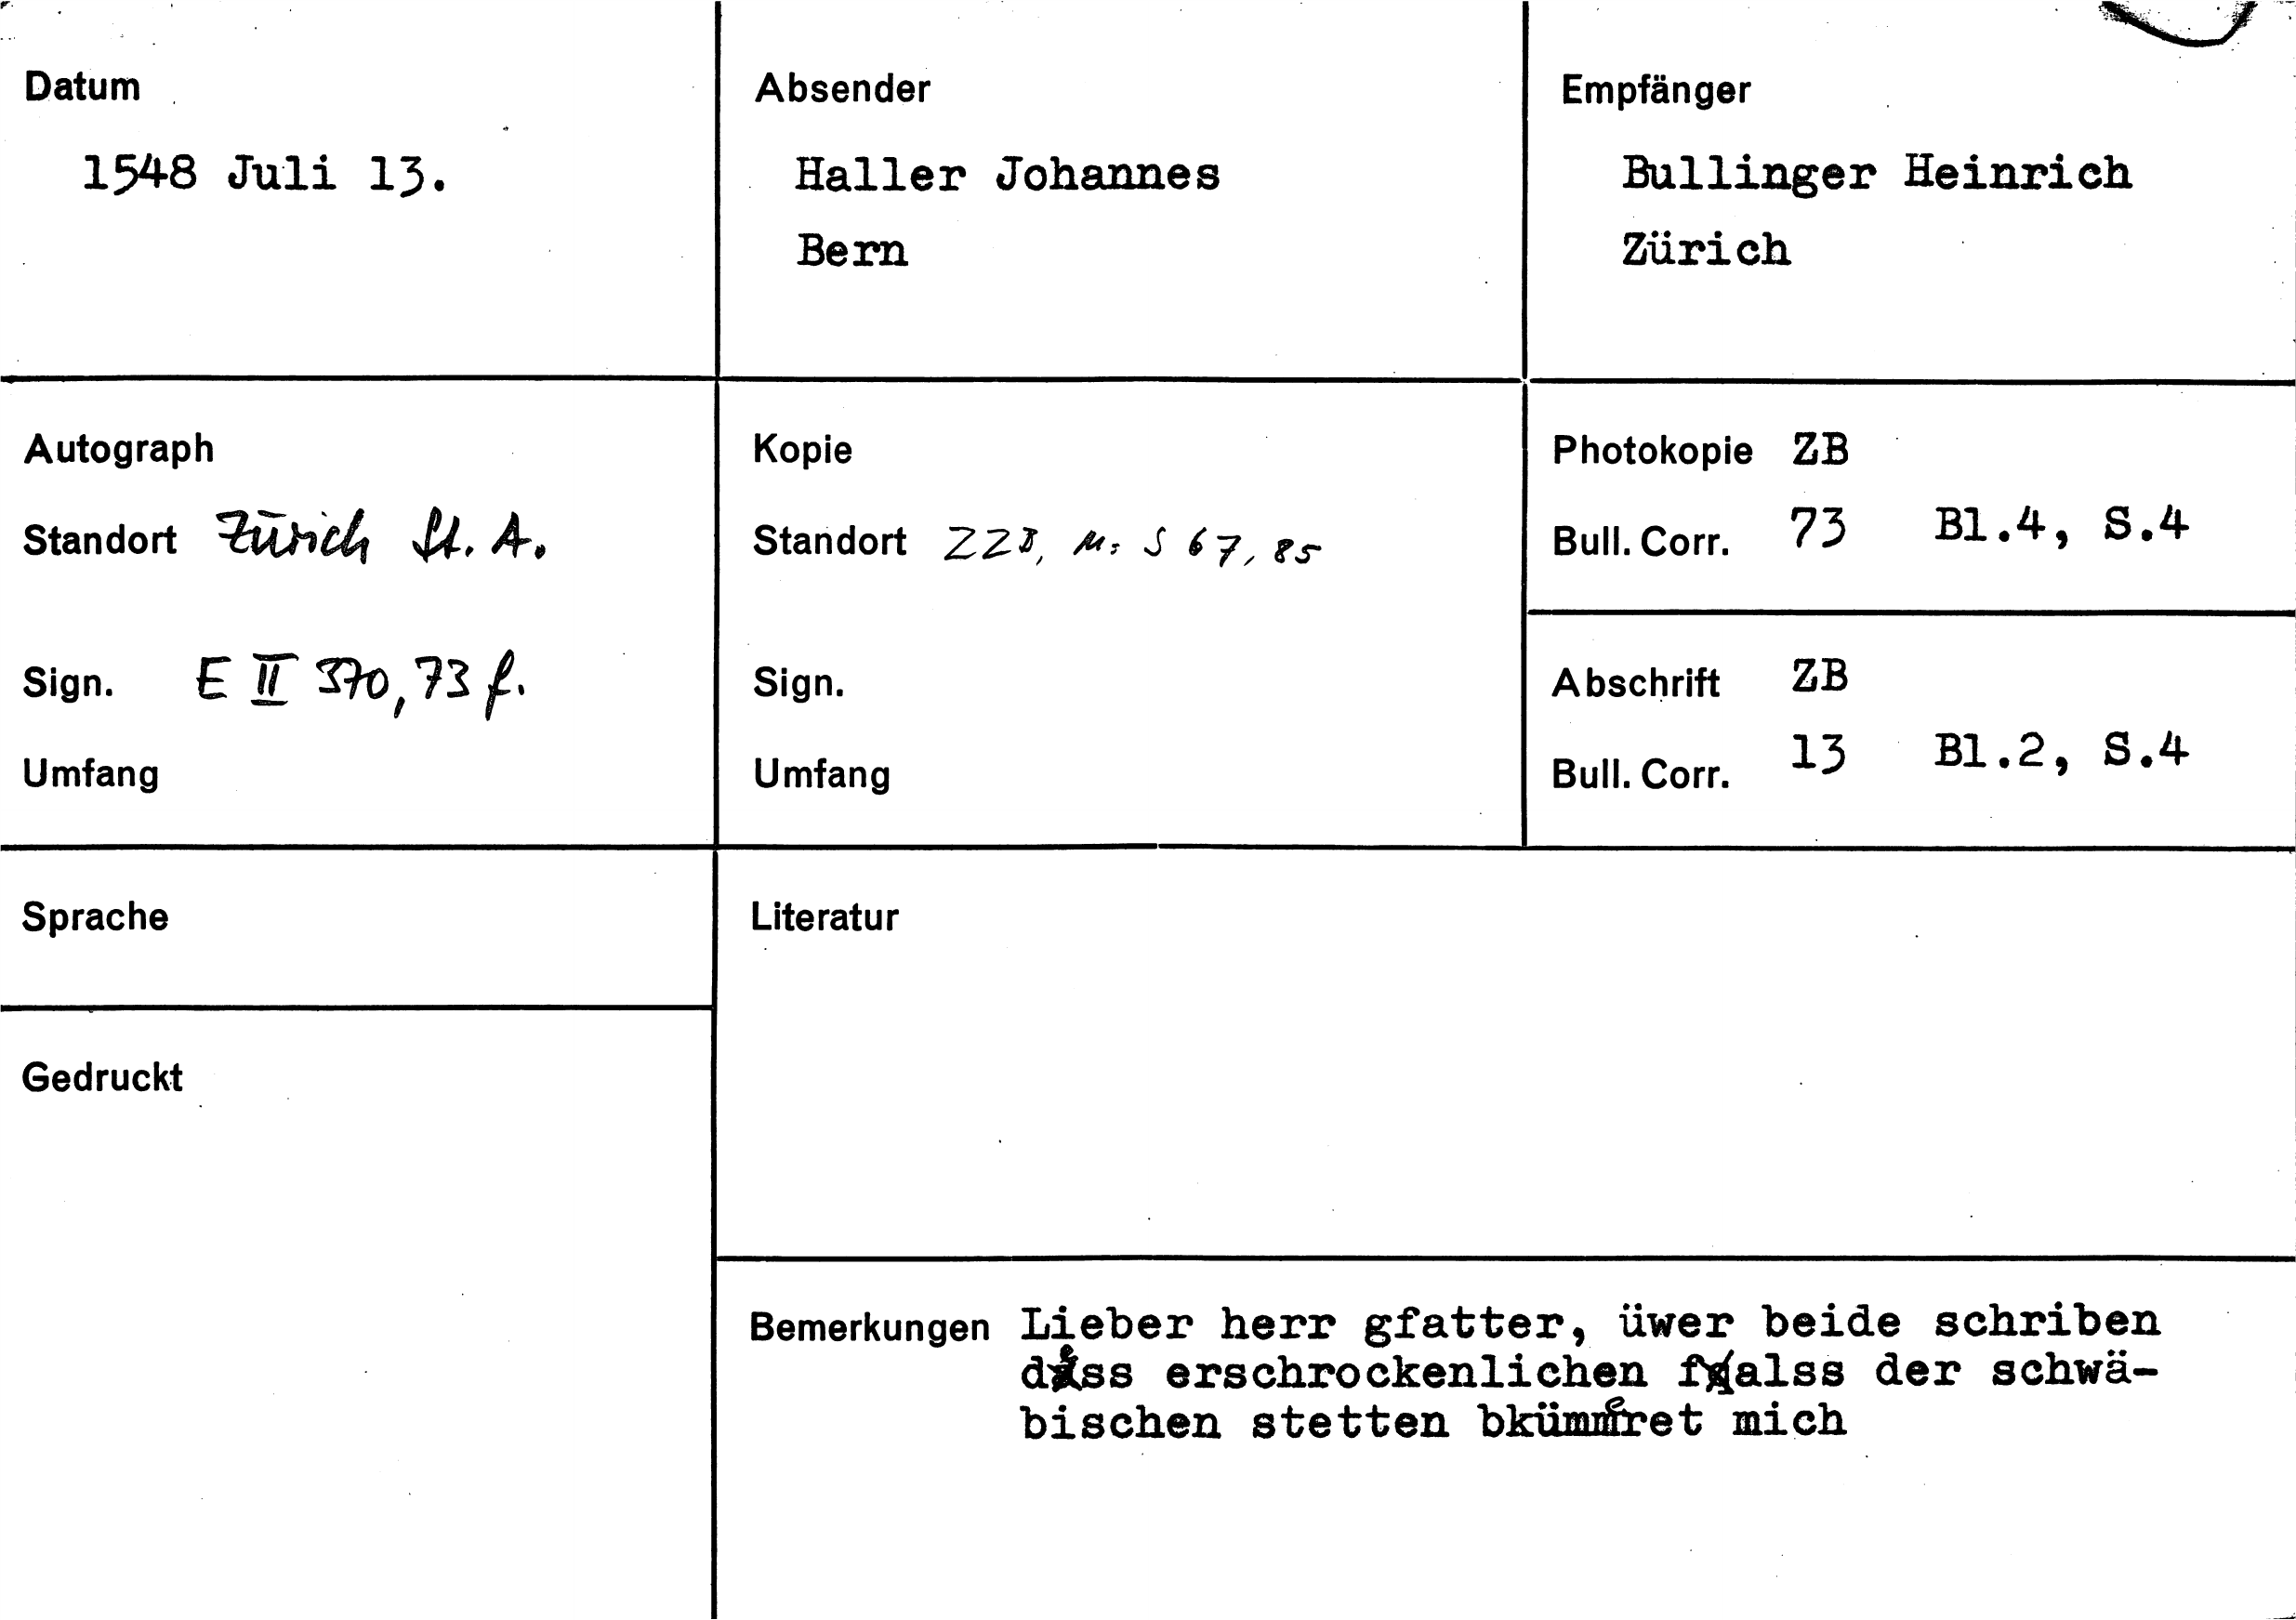 Datum
1548 Juli 13.
Absender
Haller Johannes
Bern
Empfänger
Bullinger Heinrich
Zürich
Autograph
Standort Zürich St. A.
Sign. E II 370, 73 f.
Umfang
Kopie
Standort ZZB, Ms S 67, 85
Sign.
Umfang
Photokopie ZB
Bull. Corr. 73 Bl.4, S.4
Abschrift ZB
Bull. Corr. 13 Bl.2, S.4
Sprache
Literatur
Gedruckt
Bemerkungen Lieber herr gfatter, üwer beide schriben
erschrockenlichen falss der schwä-
bischen stetten bkümmret mich